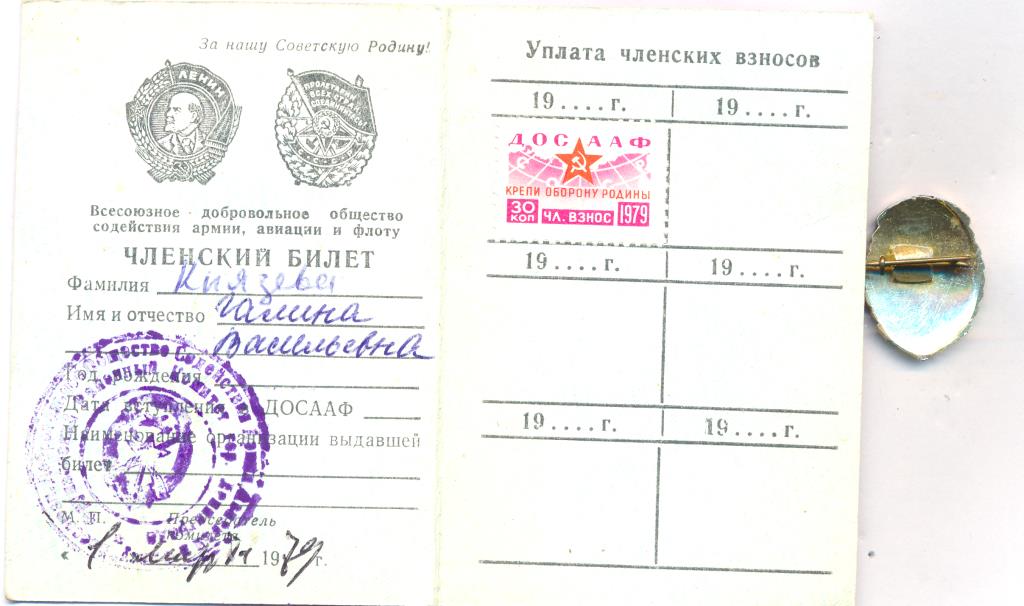 За нашу Советскую Родину!
ЛЕНИН
ПРОЛЕТАРИИ
ВСЕХ СТРАН
СОЕДИНЯЙТЕСЬ
Всесоюзное добровольное общество
содействия армии, авиации и флоту
ЧЛЕНСКИЙ БИЛЕТ
Фамилия Князева
Имя и отчество Галина
Васильевна
Год рождения
Дата вступления в ДОСААФ
Наименование организации выдавшей
билет
М. П. Председатель
комитета
« 1 » марта 1979 г.
Уплата членских взносов
19 .... г. 19 .... г.
ДОСААФ
КРЕПИ ОБОРОНУ РОДИНЫ
30 КОП ЧЛ. ВЗНОС 1979
19 .... г. 19 .... г.
19 .... г. 19 .... г.